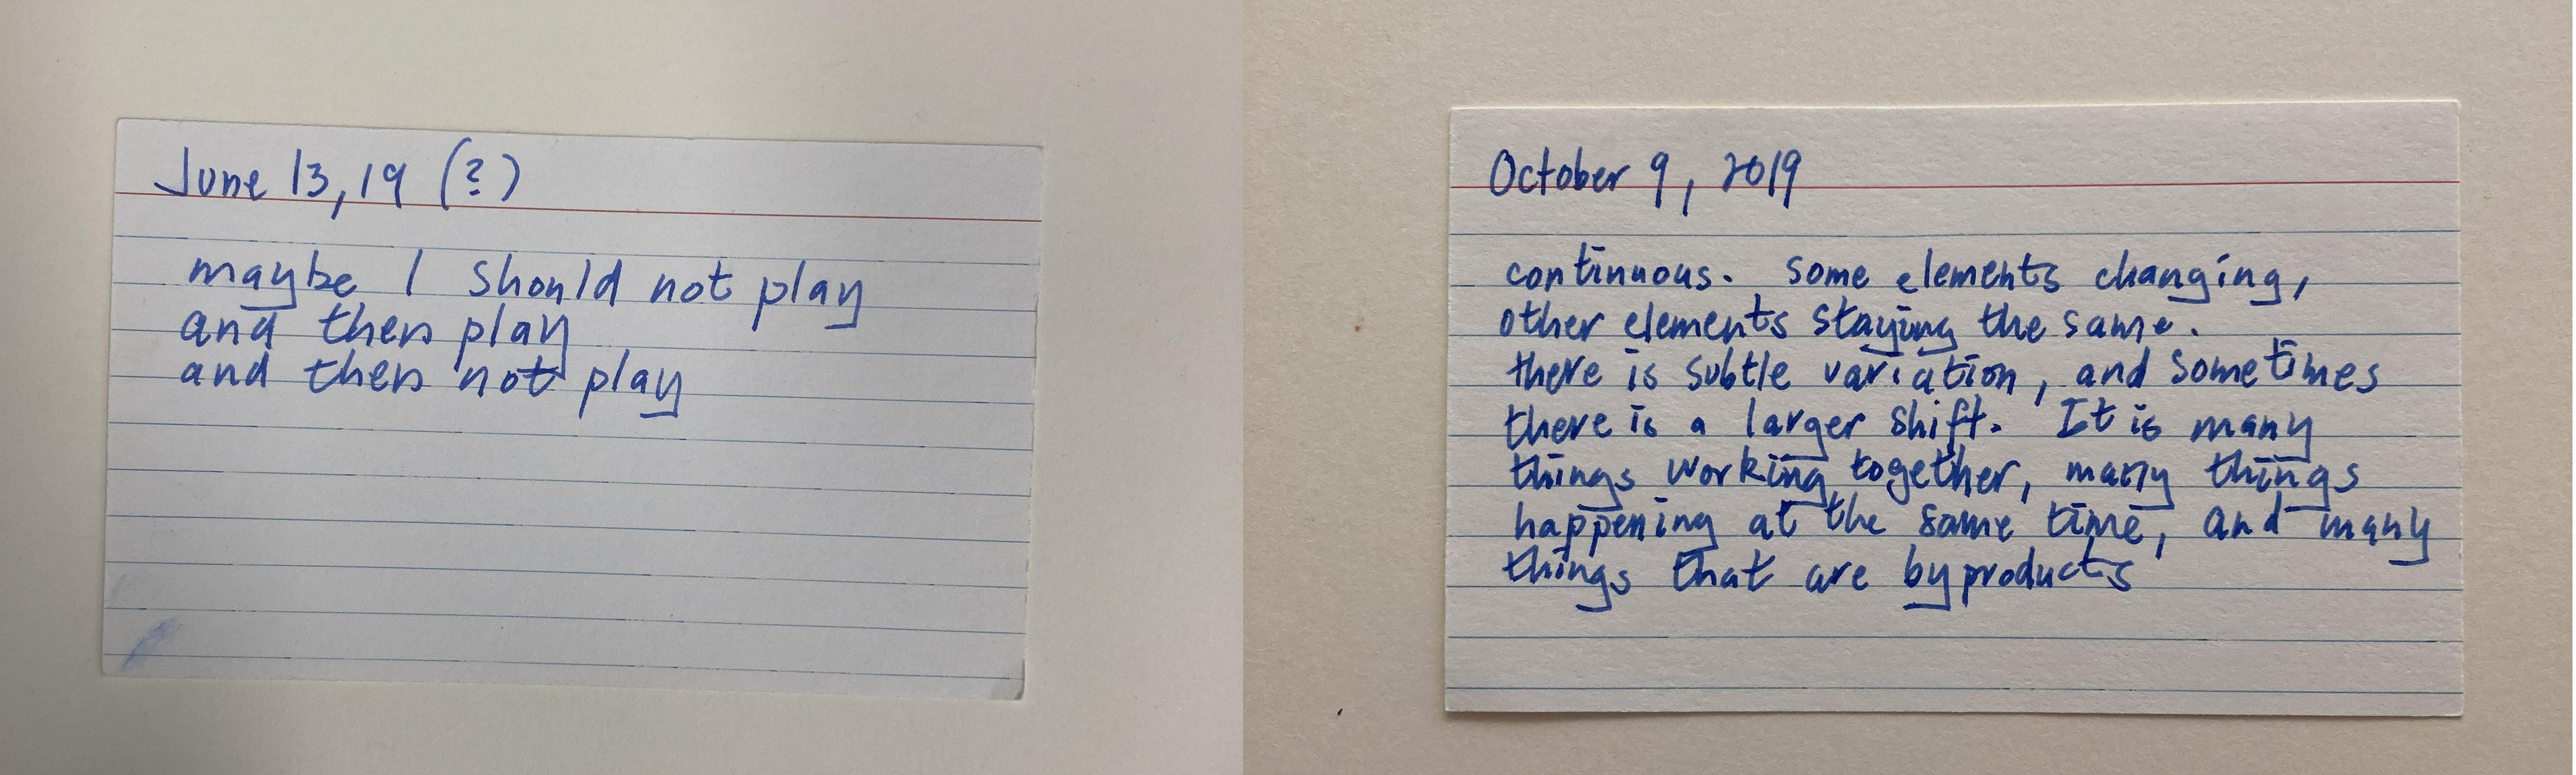 June 13, 19 (?)
maybe I should not play
and then play
and then not play
October 9, 2019
continuous. Some elements changing,
other elements staying the same.
there is subtle variation, and sometimes
there is a larger shift. It is many
things working together, many things
happening at the same time, and many
things that are byproducts